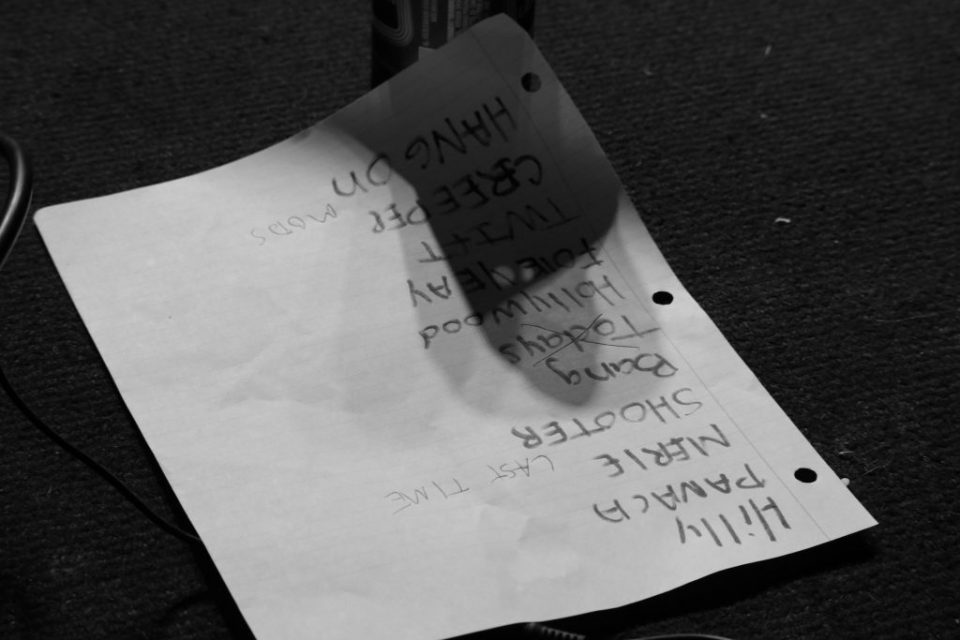 Hilly
PANACH
MERIE LAST TIME
SHOOTER
Bang
Todays
Hollywood
TWIST
CREEPER MODS
HANG ON